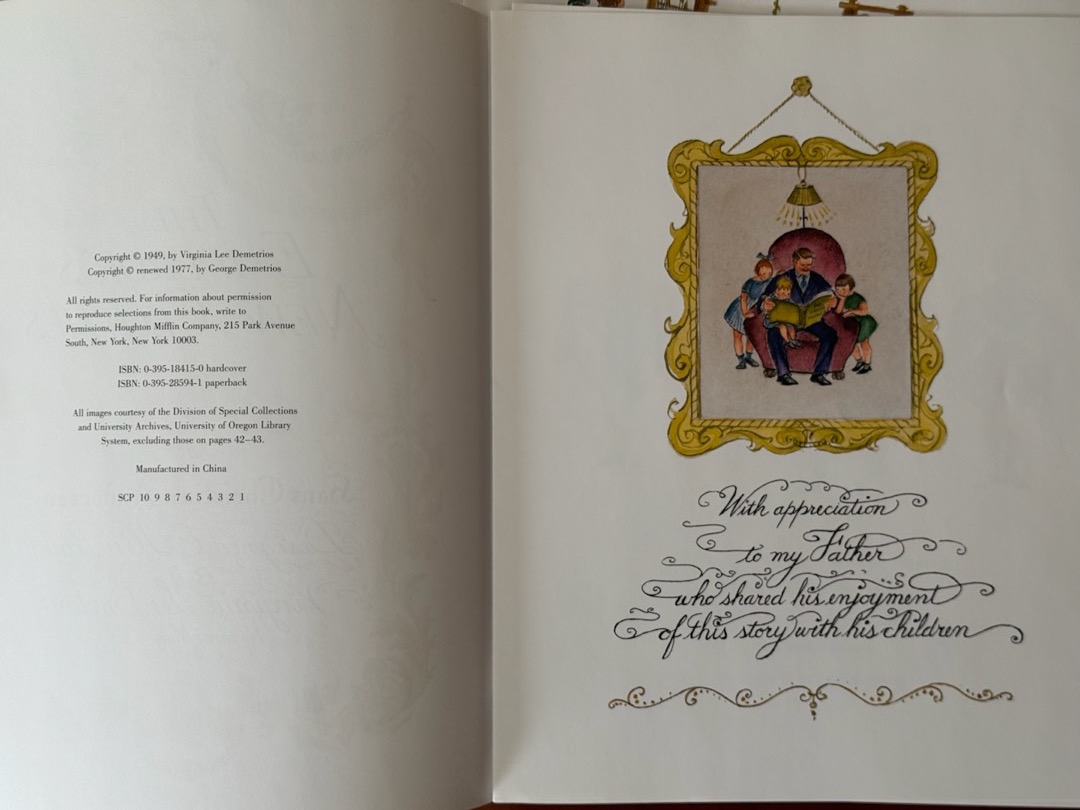 Copyright © 1949, by Virginia Lee Demetrios
Copyright © renewed 1977, by George Demetrios
All rights reserved. For information about permission
to reproduce selections from this book, write to
Permissions, Houghton Mifflin Company, 215 Park Avenue
South, New York, New York 10003.
ISBN: 0-395-18415-0 hardcover
ISBN: 0-395-28594-1 paperback
All images courtesy of the Division of Special Collections
and University Archives, University of Oregon Library
System, excluding those on pages 42–43.
Manufactured in China
SCP 10 9 8 7 6 5 4 3 2 1
With appreciation
to my Father
who shared his enjoyment
of this story with his children